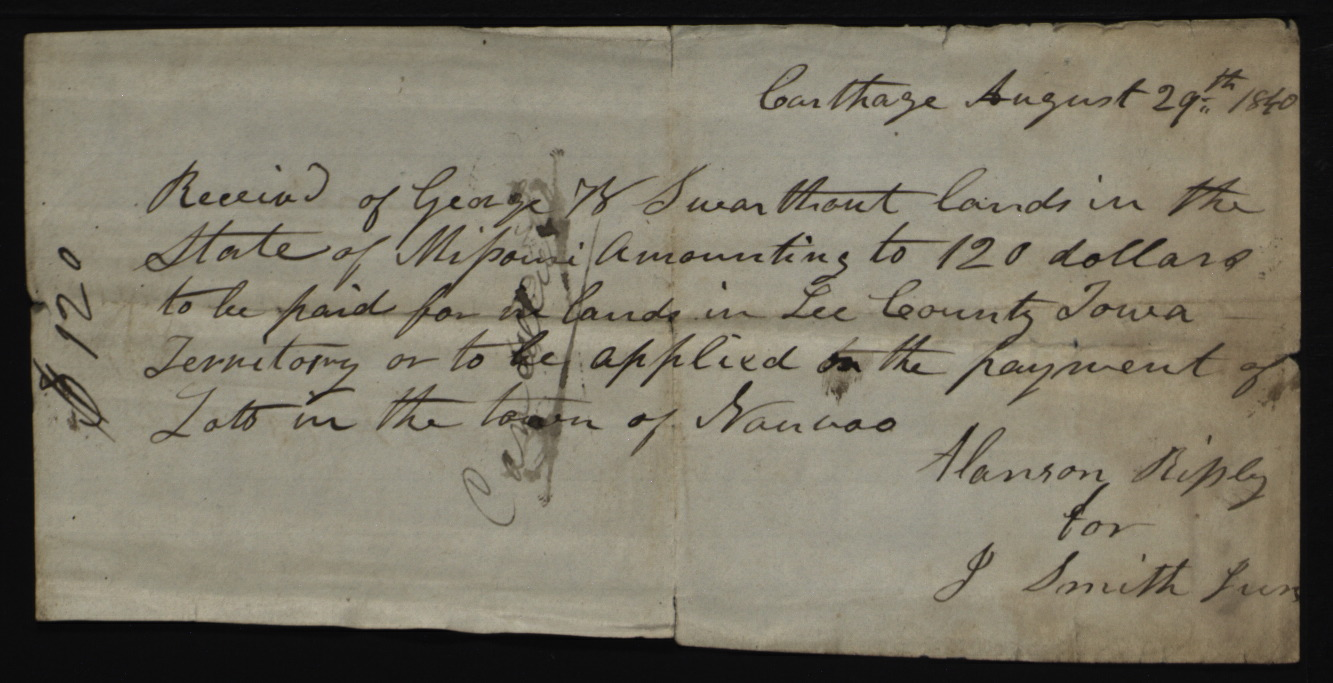 Carthage August 29th 1840
Received of George W Swarthout lands in the
State of Missouri amounting to 120 dollars
to be paid for in lands in Lee County Iowa
Territory or to be applied on the payment of
Lots in the town of Nauvoo
Alanson Ripley
for
J Smith Jun
$ 120